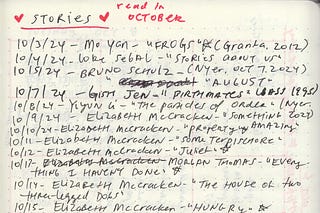 ♥ STORIES ♥ read in
OCTOBER
10/3/24 - Mo Yan - "FROGS" (Granta, 2012)
10/4/24 - Lore Segal - "STORIES ABOUT US"
10/5/24 - BRUNO SCHULZ - (NYer, OCT 7, 2024)
"AUGUST"
10/7/24 - GISH JEN - "BIRTHMATES" (BASS 1995)
10/8/24 - Yiyun Li - "The Particles of Order" (NYer,
10/9/24 - Elizabeth McCracken - "SOMETHING 2023)
10/10/24 - Elizabeth McCracken - "property" AMAZING"
10/11 - Elizabeth McCracken - "Some Terpsichore"
10/12 - Elizabeth McCracken - "Juliet"
10/13 - MORGAN THOMAS - "EVERY
THING I HAVEN'T DONE"
10/14 - Elizabeth McCracken - "The House of two
three-legged Dogs"
10/15 - ELIZABETH McCracken - "HUNGRY"